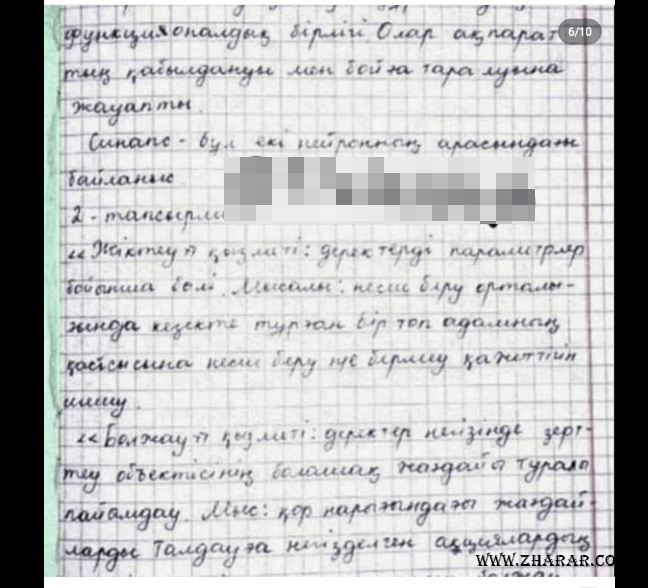 функционалдық бірлігі Олар ақпарат
6/10
тың қабылдануы мен бойға таралуына
жауапты.
Синапс - бұл екі нейронның арасындағы
байланыс
2 - тапсырма
«Жіктеу» қызметі: деректерді параметрлер
бойынша бөлі. Мысалы: несие беру орталы-
ғында кезекте тұрған бір топ адамның
қайсысына несие беру не бермеу қажеттігін
шешу.
«Болжау» қызметі: деректер негізінде зерт-
теу объектісінің болашақ жағдайы туралы
пайымдау. Мыс: қор нарығындағы жағдай-
ларды талдауға негізделген акциялардың
WWW.ZHARAR.CO
болжау